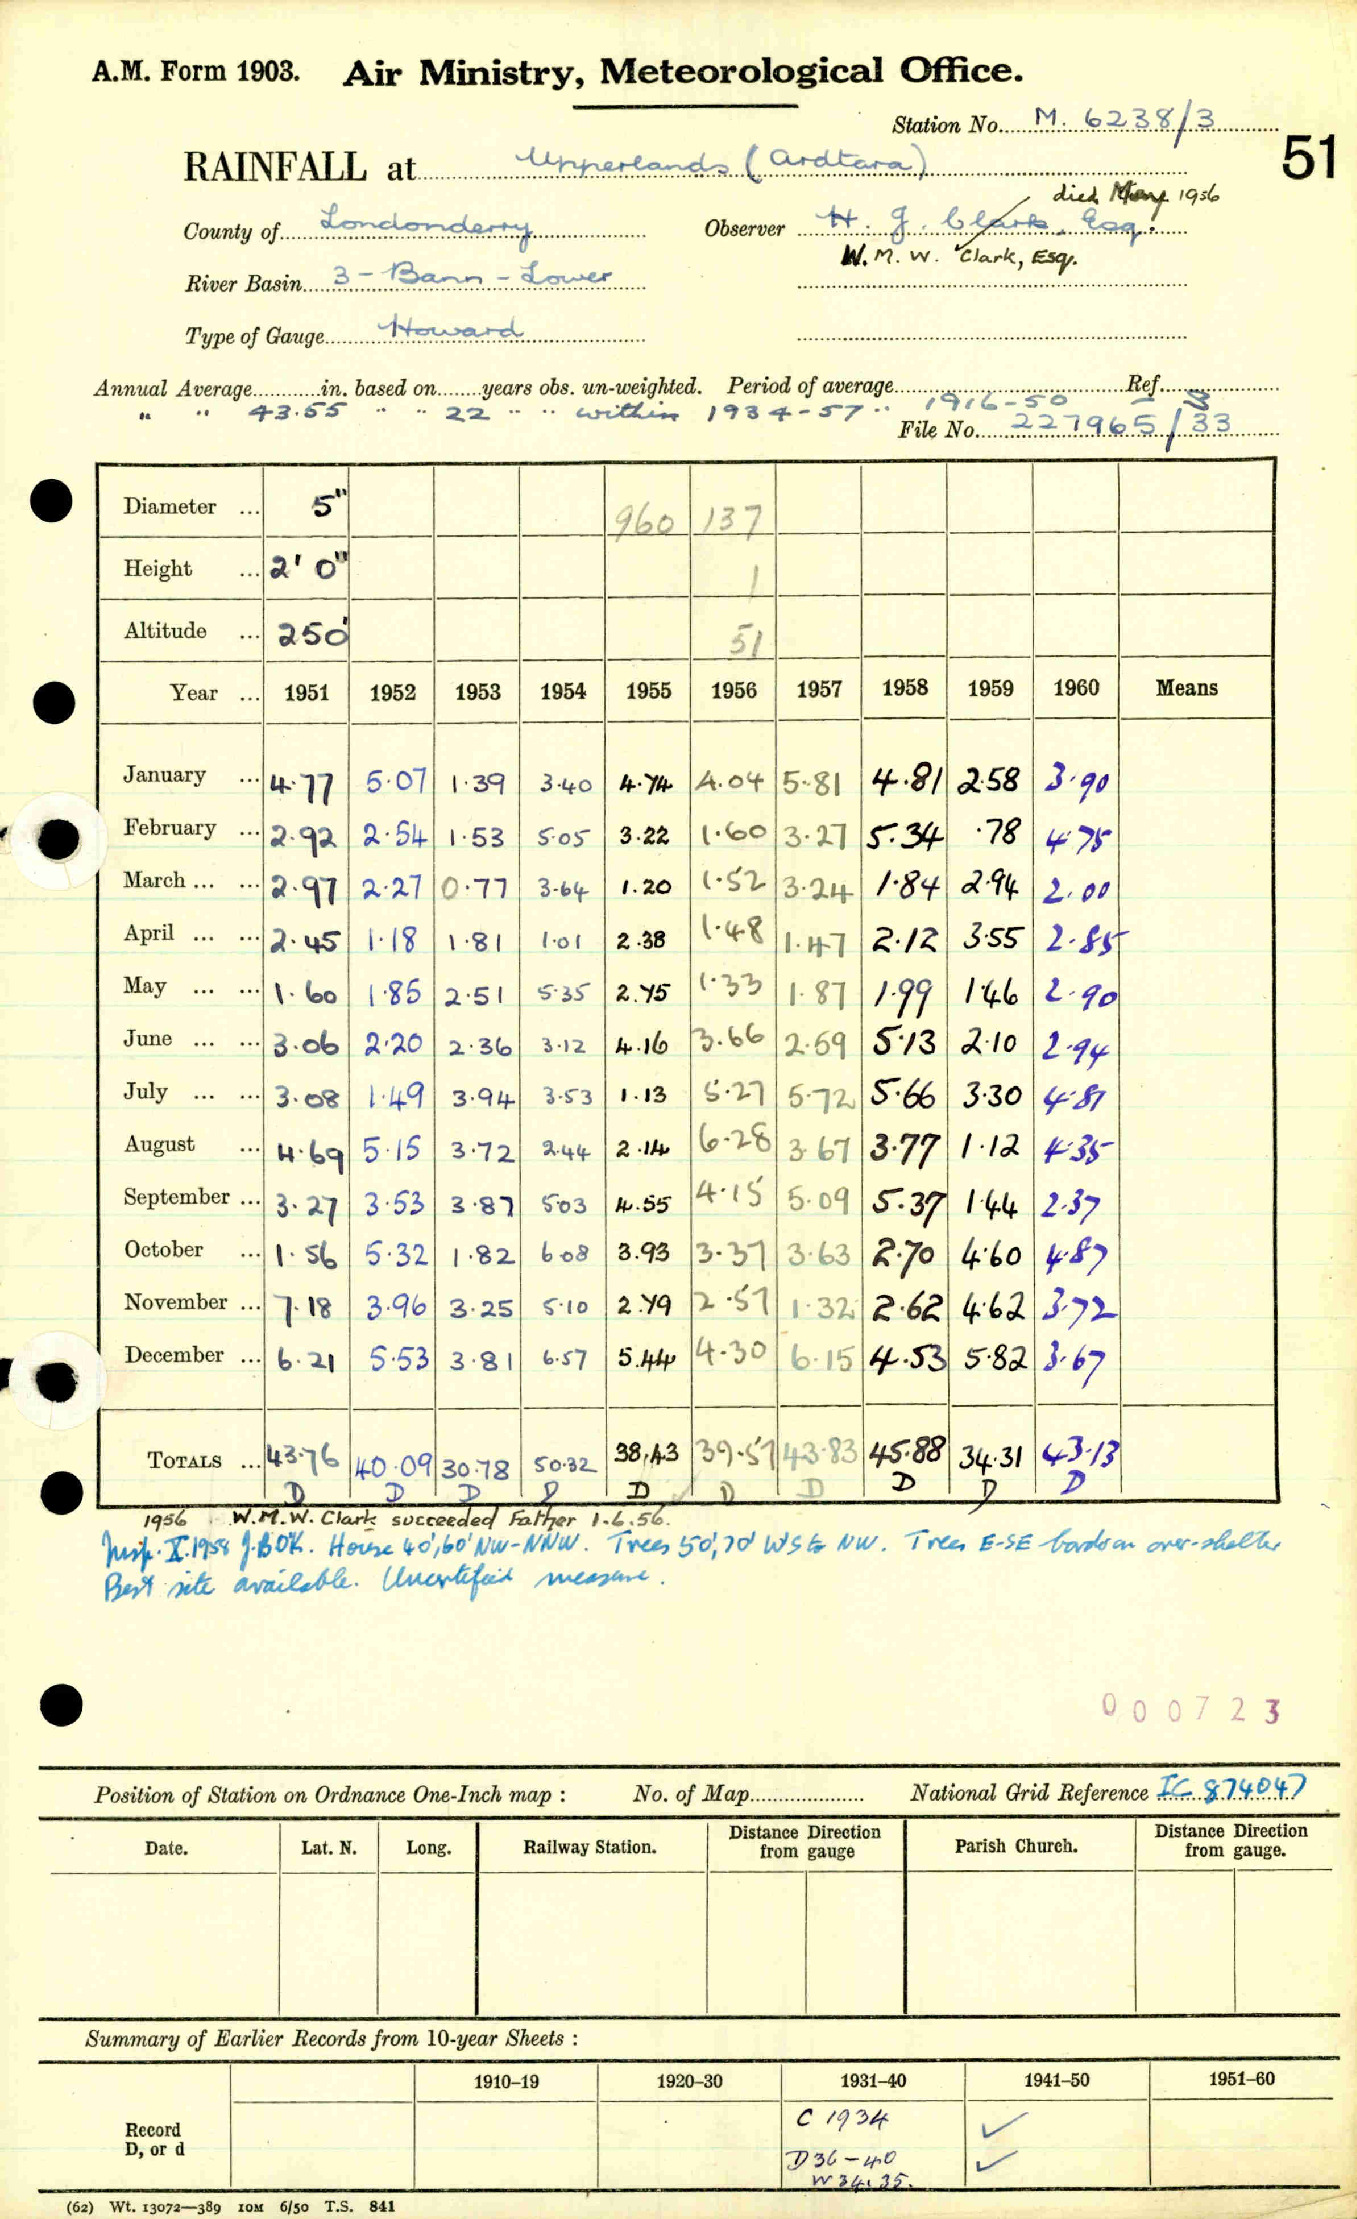 A.M. Form 1903. Air Ministry, Meteorological Office.
Station No. M. 6238/3
51
RAINFALL at Upperlands (Ardtara)
died May 1956
County of Londonderry Observer H. J. Clark, Esq.
W. M. W. Clark, Esq.
River Basin 3 - Bann - Lower
Type of Gauge Howard
Annual Average in. based on years obs. un-weighted. Period of average Ref.
" " 43.55 " " 22 " " within 1934-57 " 1916-50
File No. 227965/33
Diameter ... 5" 960 137
Height ... 2' 0" 1
Altitude ... 250' 51
Year ... 1951 1952 1953 1954 1955 1956 1957 1958 1959 1960 Means
January ... 4.77 5.07 1.39 3.40 4.74 4.04 5.81 4.81 2.58 3.90
February ... 2.92 2.54 1.53 5.05 3.22 1.60 3.27 5.34 .78 4.75
March ... ... 2.97 2.27 0.77 3.64 1.20 1.52 3.24 1.84 2.94 2.00
April ... ... 2.45 1.18 1.81 1.01 2.38 1.48 1.47 2.12 3.55 2.85
May ... ... 1.60 1.85 2.51 5.35 2.75 1.33 1.87 1.99 1.46 2.90
June ... ... 3.06 2.20 2.36 3.12 4.16 3.66 2.59 5.13 2.10 2.94
July ... ... 3.08 1.49 3.94 3.53 1.13 5.27 5.72 5.66 3.30 4.81
August ... 4.69 5.15 3.72 2.44 2.14 6.28 3.67 3.77 1.12 4.35
September ... 3.27 3.53 3.87 5.03 4.55 4.15 5.09 5.37 1.44 2.37
October ... 1.56 5.32 1.82 6.08 3.93 3.37 3.63 2.70 4.60 4.87
November ... 7.18 3.96 3.25 5.10 2.79 2.57 1.32 2.62 4.62 3.72
December ... 6.21 5.53 3.81 6.57 5.44 4.30 6.15 4.53 5.82 3.67
TOTALS ... 43.76 40.09 30.78 50.32 38.43 39.57 43.83 45.88 34.31 43.13
D D D D D D D D D D
1956 W.M.W. Clark succeeded Father 1.6.56.
Insp. X.1958 J.BO'K. House 40',60' NW-NNW. Trees 50',70' WSW to NW. Trees E-SE border on over-shelter
Best site available. Uncertified measure.
000723
Position of Station on Ordnance One-Inch map : No. of Map National Grid Reference IC 874047
Date. Lat. N. Long. Railway Station. Distance Direction from gauge Parish Church. Distance Direction from gauge.
Summary of Earlier Records from 10-year Sheets :
1910-19 1920-30 1931-40 1941-50 1951-60
Record C 1934 ✓
D, or d D36-40 ✓
W 34.35.
(62) Wt. 13072—389 10M 6/50 T.S. 841